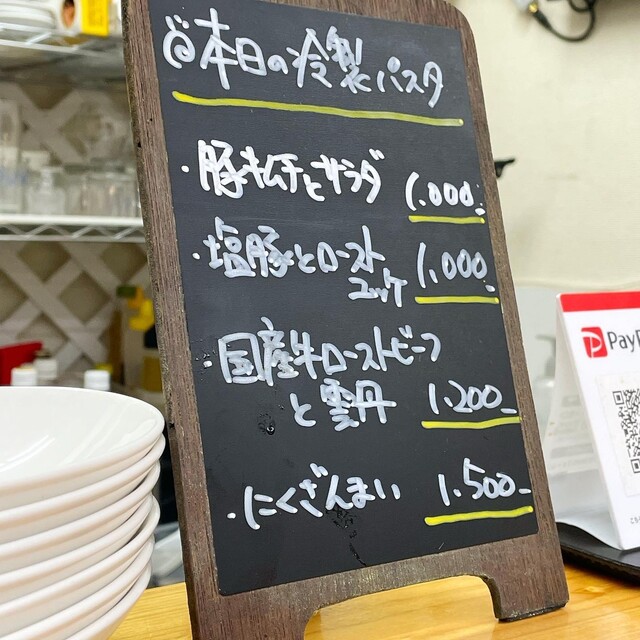 ◎本日の冷製パスタ
・豚キムチとサラダ 1.000-
・塩豚とロースト
ユッケ 1.000-
・国産牛ローストビーフ
と雲丹 1.200-
・にくざんまい 1.500-
PayP